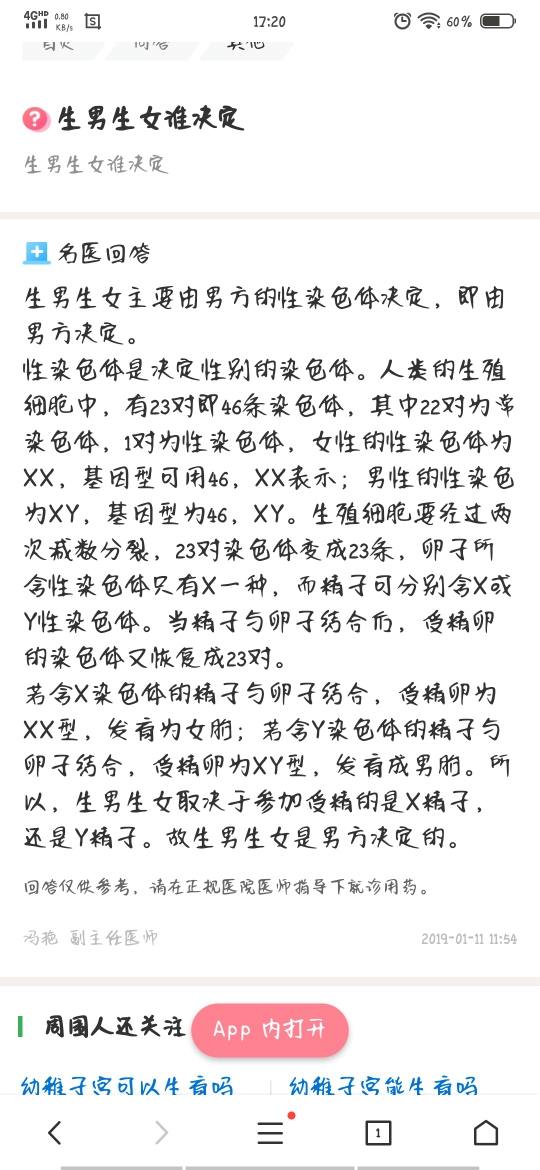 4GHD 0.80 KB/s 17:20 60%
首页 问答 其他
生男生女谁决定
生男生女谁决定
名医回答
生男生女主要由男方的性染色体决定，即由
男方决定。
性染色体是决定性别的染色体。人类的生殖
细胞中，有23对即46条染色体，其中22对为常
染色体，1对为性染色体，女性的性染色体为
XX，基因型可用46，XX表示；男性的性染色
为XY，基因型为46，XY。生殖细胞要经过两
次减数分裂，23对染色体变成23条，卵子所
含性染色体只有X一种，而精子可分别含X或
Y性染色体。当精子与卵子结合后，受精卵
的染色体又恢复成23对。
若含X染色体的精子与卵子结合，受精卵为
XX型，发育为女胎；若含Y染色体的精子与
卵子结合，受精卵为XY型，发育成男胎。所
以，生男生女取决于参加受精的是X精子，
还是Y精子。故生男生女是男方决定的。
回答仅供参考，请在正规医院医师指导下就诊用药。
冯艳 副主任医师 2019-01-11 11:54
周围人还关注
App 内打开
幼稚子宫可以生育吗 幼稚子宫能生育吗
1